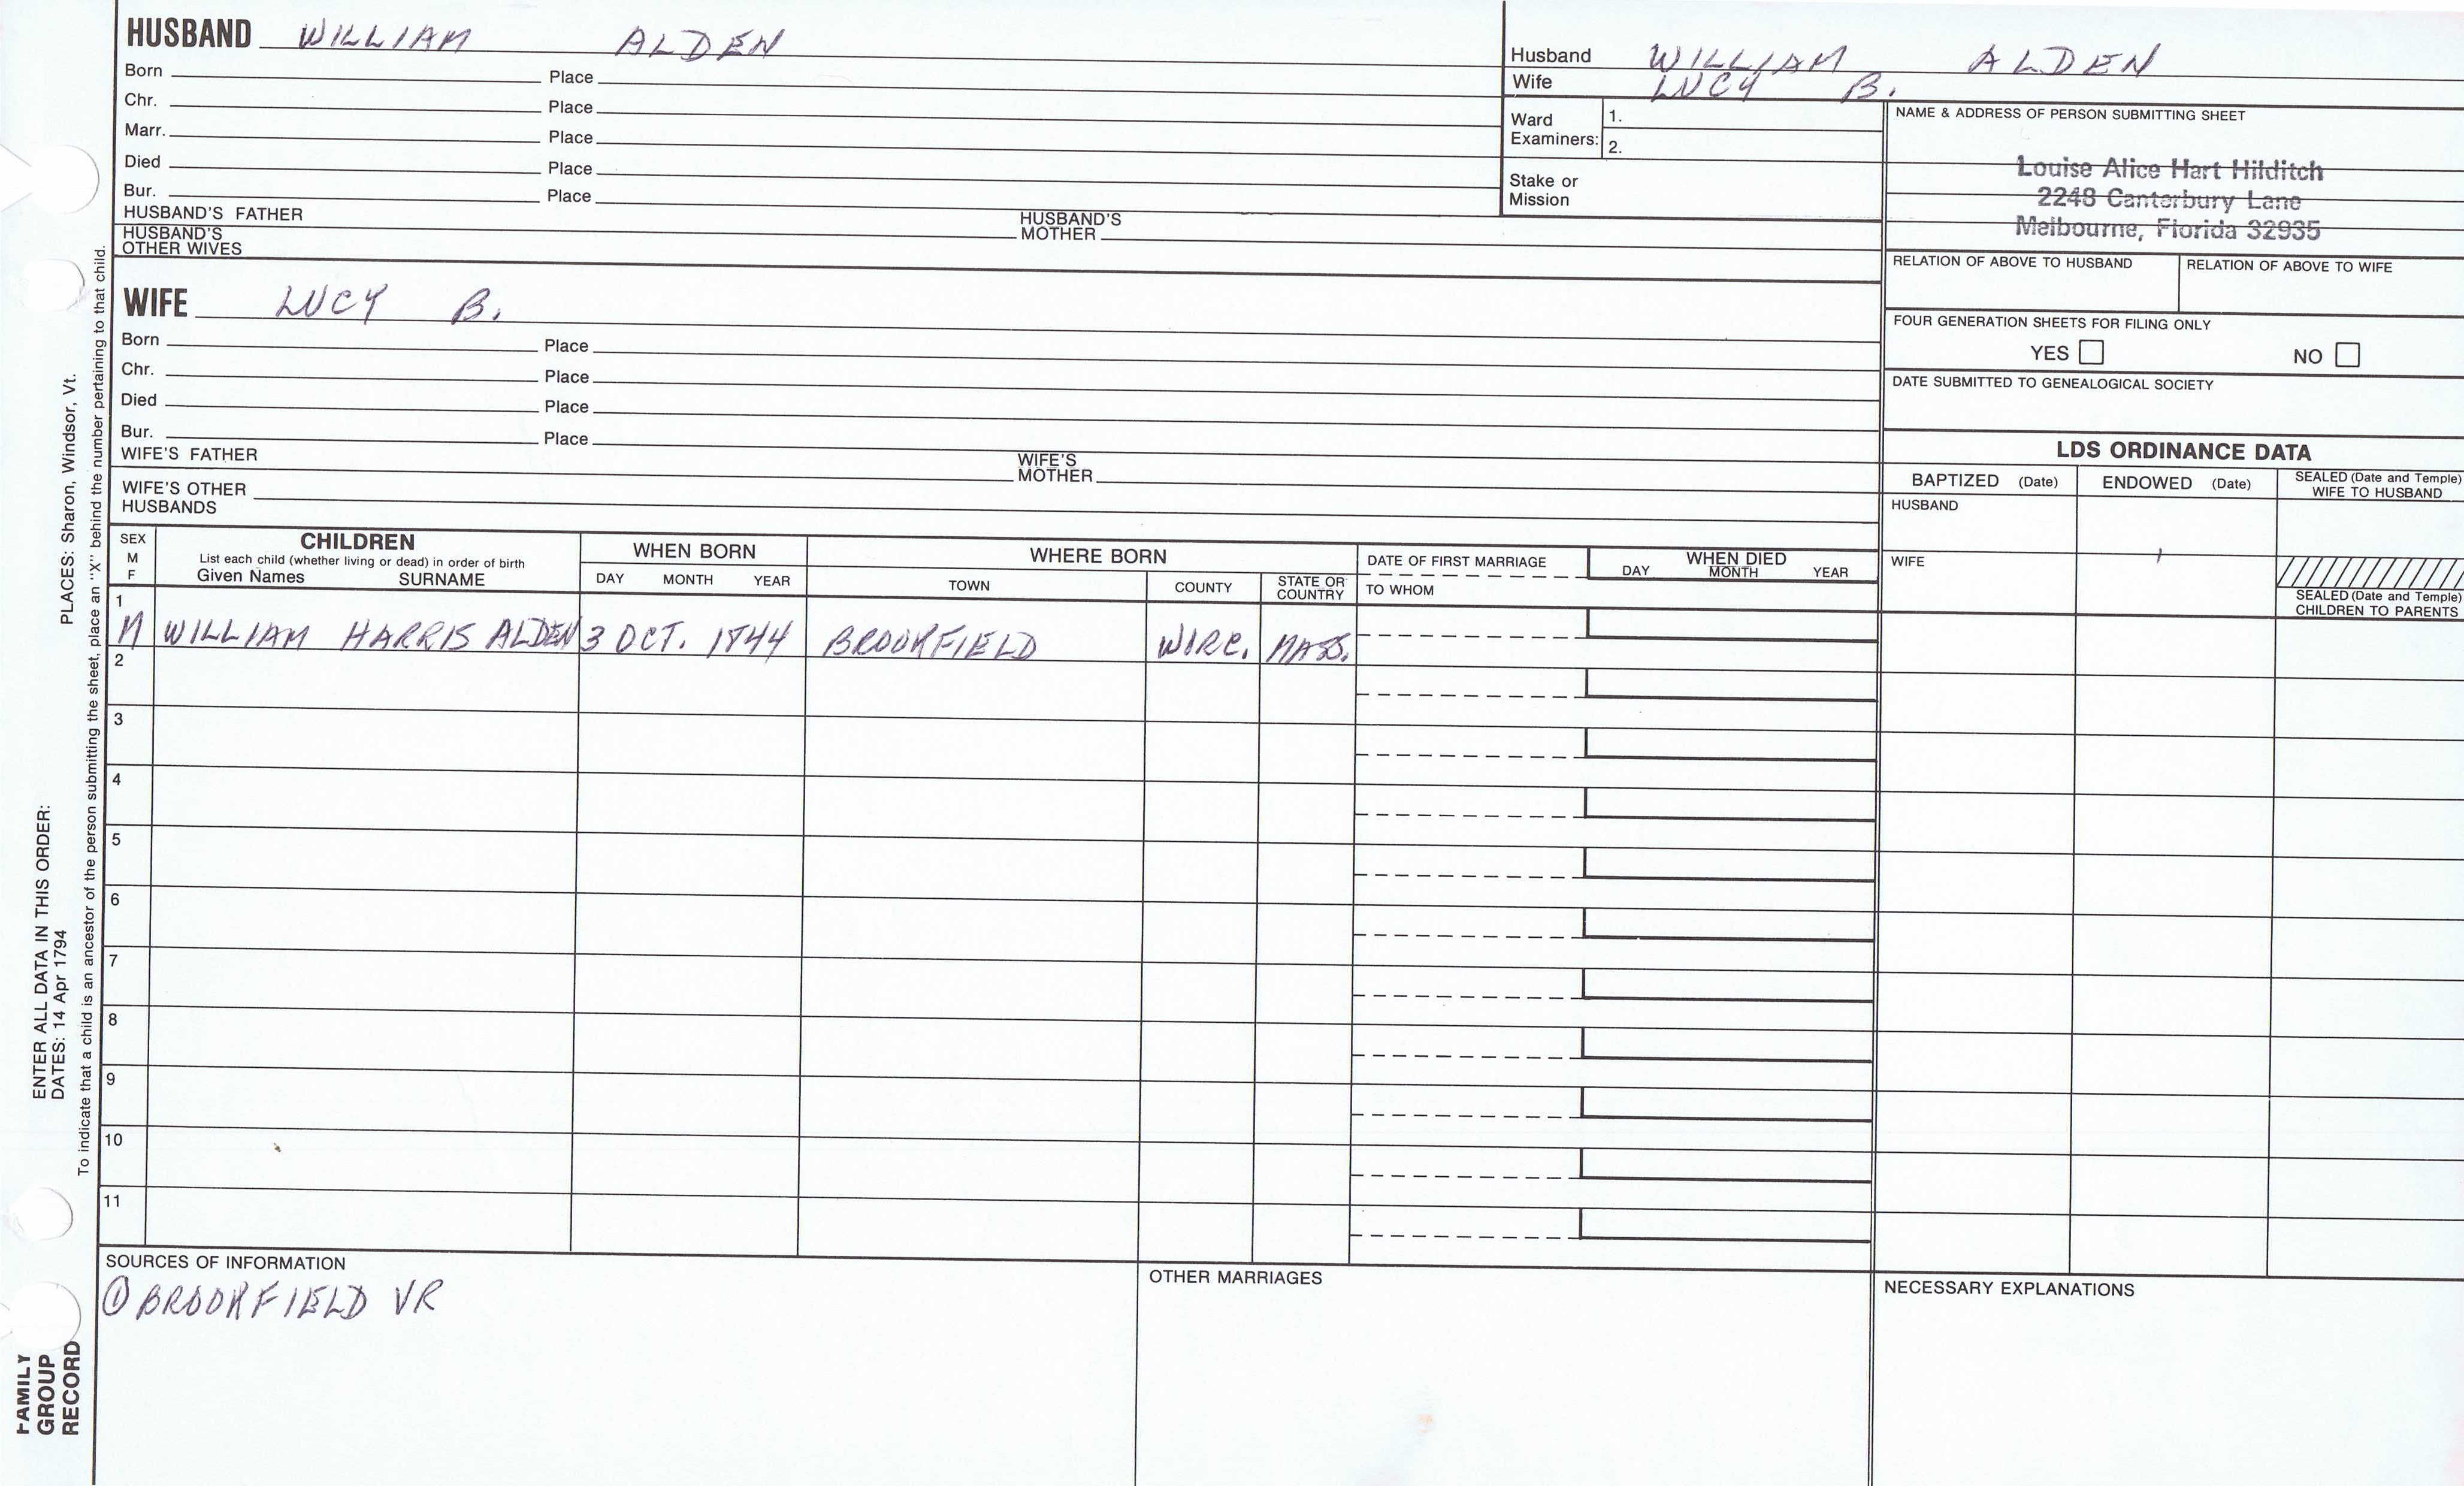 HUSBAND WILLIAM ALDEN
Born Place
Chr. Place
Marr. Place
Died Place
Bur. Place
HUSBAND'S FATHER HUSBAND'S MOTHER
HUSBAND'S OTHER WIVES
Husband WILLIAM ALDEN
Wife LUCY B.
Ward Examiners: 1.
2.
Stake or Mission
NAME & ADDRESS OF PERSON SUBMITTING SHEET
Louise Alice Hart Hilditch
2248 Canterbury Lane
Melbourne, Florida 32935
RELATION OF ABOVE TO HUSBAND RELATION OF ABOVE TO WIFE
FOUR GENERATION SHEETS FOR FILING ONLY
YES NO
DATE SUBMITTED TO GENEALOGICAL SOCIETY
WIFE LUCY B.
Born Place
Chr. Place
Died Place
Bur. Place
WIFE'S FATHER WIFE'S MOTHER
WIFE'S OTHER HUSBANDS
LDS ORDINANCE DATA
BAPTIZED (Date) ENDOWED (Date) SEALED (Date and Temple) WIFE TO HUSBAND
HUSBAND
WIFE
SEALED (Date and Temple) CHILDREN TO PARENTS
SEX M F
CHILDREN
List each child (whether living or dead) in order of birth
Given Names SURNAME
WHEN BORN
DAY MONTH YEAR
WHERE BORN
TOWN COUNTY STATE OR COUNTRY
DATE OF FIRST MARRIAGE
TO WHOM
WHEN DIED
DAY MONTH YEAR
1
M WILLIAM HARRIS ALDEN 3 OCT. 1844 BROOKFIELD WORC. MASS.
2
3
4
5
6
7
8
9
10
11
SOURCES OF INFORMATION
① BROOKFIELD VR
OTHER MARRIAGES
NECESSARY EXPLANATIONS
ENTER ALL DATA IN THIS ORDER:
DATES: 14 Apr 1794 PLACES: Sharon, Windsor, Vt.
To indicate that a child is an ancestor of the person submitting the sheet, place an "X" behind the number pertaining to that child.
FAMILY
GROUP
RECORD